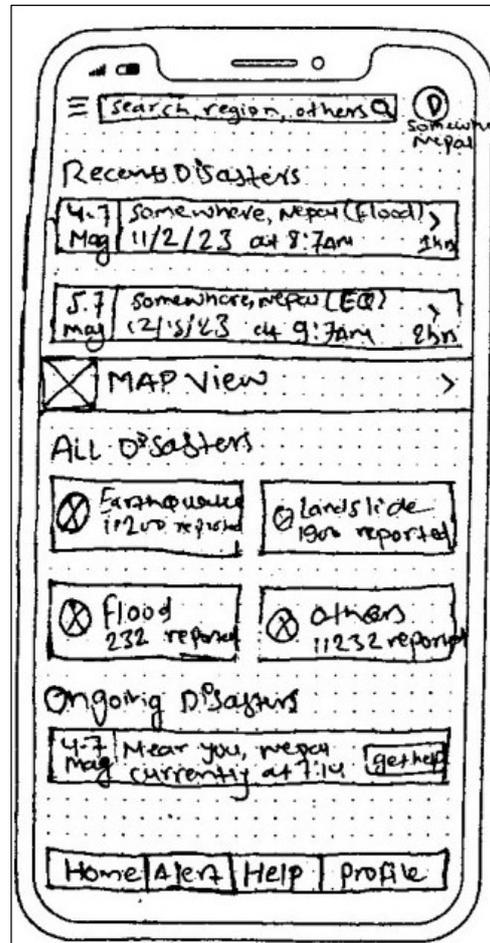 search, region, others
Somewhere
Nepal
Recent Disasters
4.7 Mag
Somewhere, Nepal (Flood) >
11/2/23 at 8:7AM 1hrs
5.7 mag
Somewhere, Nepal (EQ) >
at 9:7AM 2hrs
MAP View >
All Disasters
Earthquake
11200 reported
Landslide
1900 reported
Flood
232 reported
others
11232 reported
Ongoing Disasters
4.7 mag
Near you, Nepal
currently at 7:14
get help
Home Alert Help Profile